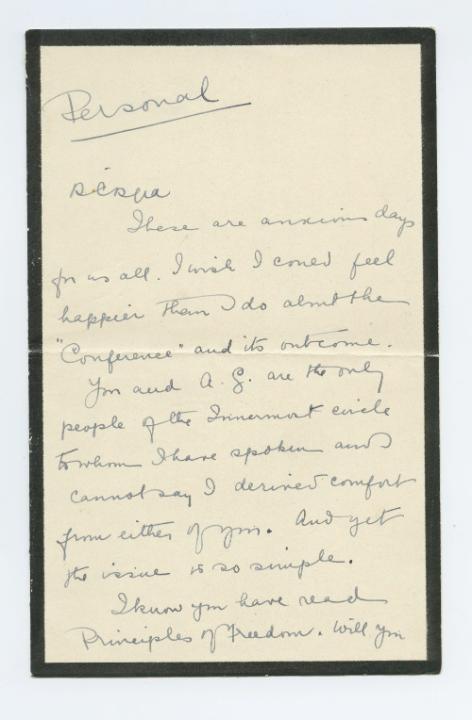 Personal
A Chara
These are anxious days
for us all. I wish I could feel
happier than I do about the
"Conference" and its outcome.
You and A. G. are the only
people of the Innermost circle
to whom I have spoken and I
cannot say I derived comfort
from either of you. And yet
the issue is so simple.
I know you have read
Principles of Freedom. Will you